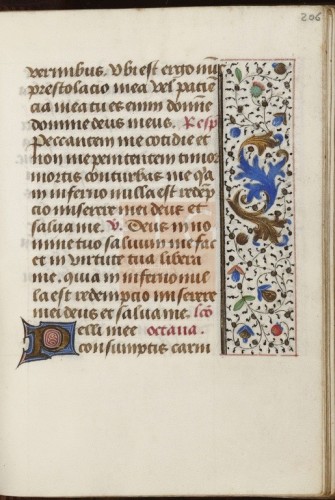 206
vermibus. Vbi est ergo nūc
prestolacio mea vel pacien
cia mea tu es enim domine
domine deus meus. Resp̄
Peccantem me cotidie et
non me penitentem timor
mortis conturbat me q̄a
in inferno nulla est redēp
cio miserere mei deus et
salua me. v̄. Deus in no
mine tuo saluum me fac
et in virtute tua libera
me. quia in inferno nul
la est redempcio miserere
mei deus et salua me. lcō
Pelli mee octaua.
consumptis carni